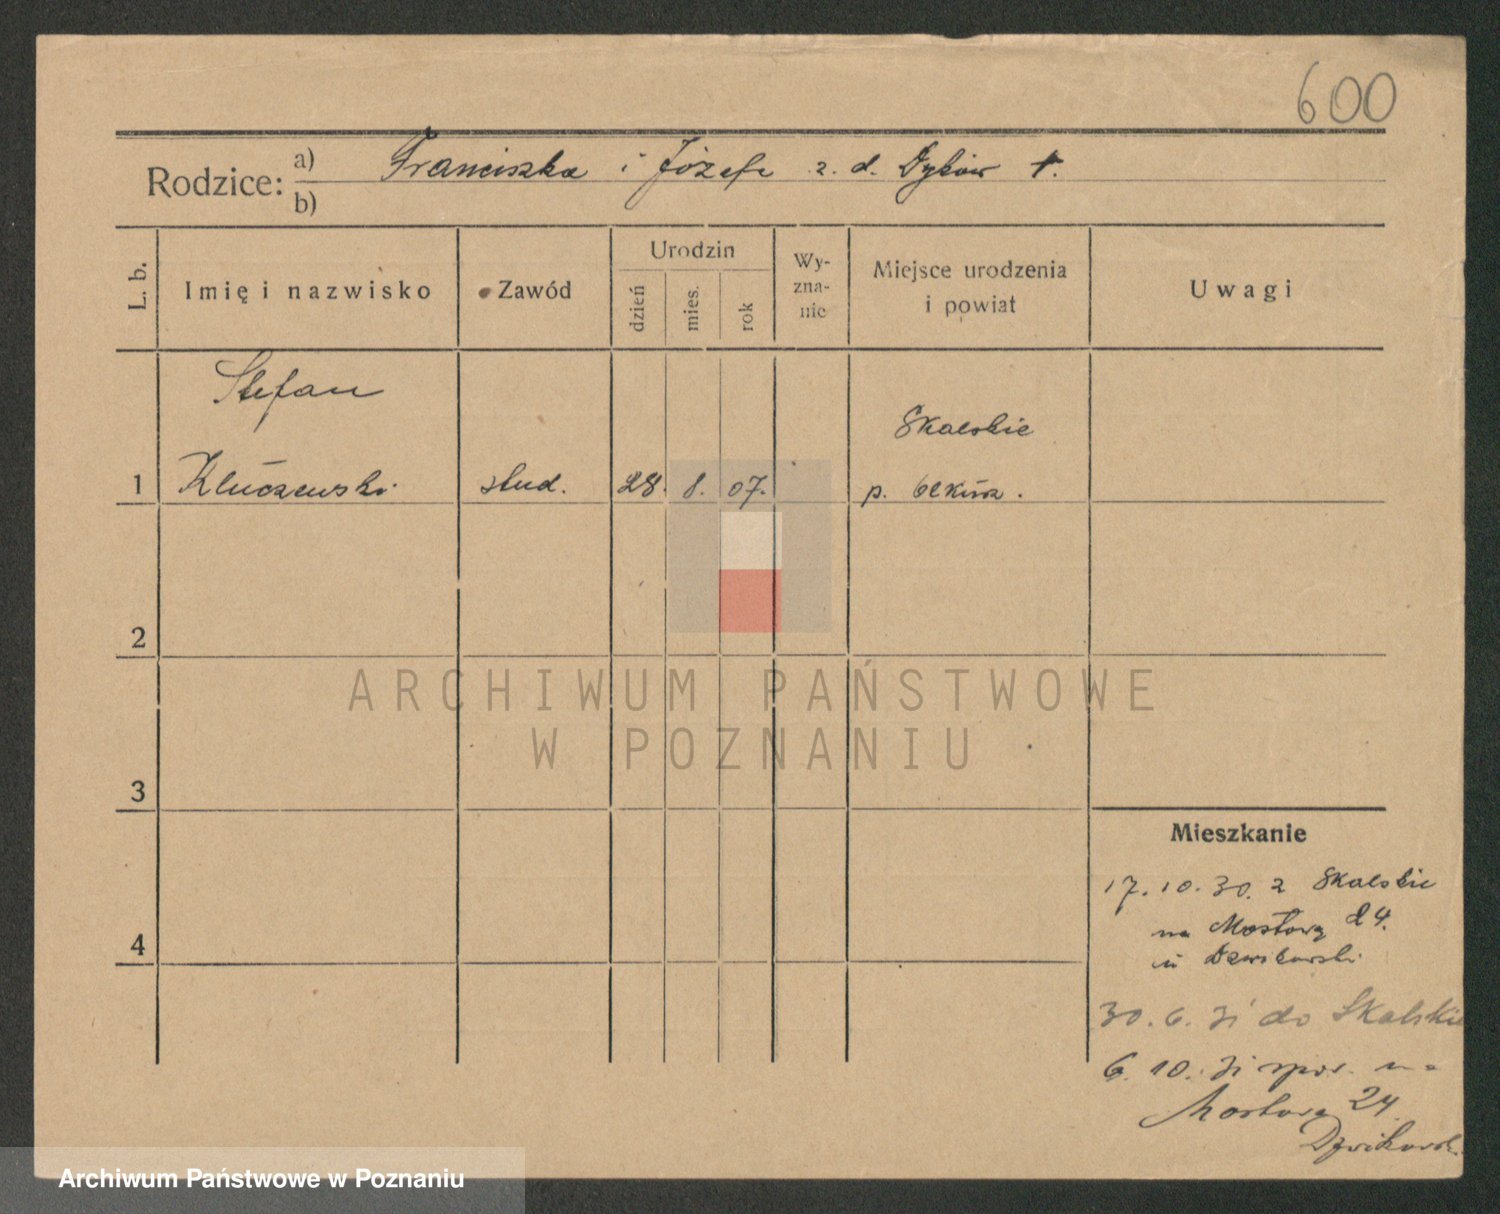 600
Rodzice: a) Franciszka i Józefa z. d. Dyków †.
b)
L. b.
Imię i nazwisko
Zawód
Urodzin
dzień
mies.
rok
Wy-
zna-
nie
Miejsce urodzenia
i powiat
Uwagi
Stefan
Skalskie
1 Kluczewski stud. 28. 8. 07. p. Olkusz.
2
ARCHIWUM PAŃSTWOWE
W POZNANIU
3
4
Mieszkanie
17. 10. 30. z Skalskie
na Mostową 24.
u
30. 6. 31 do Skalskie
6. 10. 31 na
Mostową 24.
Archiwum Państwowe w Poznaniu